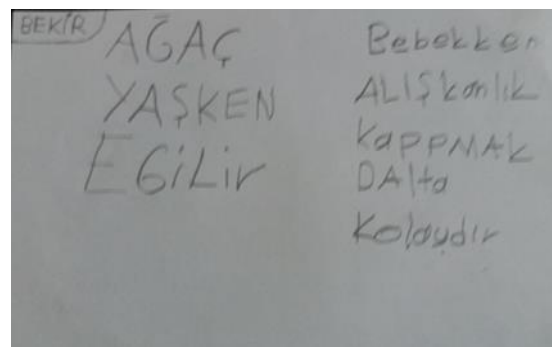 BEKİR
AĞAÇ
YAŞKEN
EGİLİr
Bebekken
ALIŞkanlık
kaPPMAk
DAlta
Kolaydır